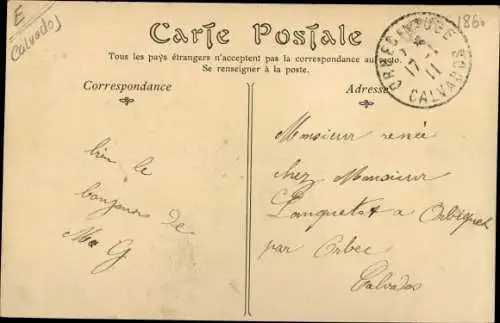 E
Calvados
186
Carte Postale
Tous les pays étrangers n'acceptent pas la correspondance au recto.
Se renseigner à la poste.
Correspondance
Adresse
ORBEC EN AUGE
17 - 1
11
CALVADOS
bien le
bonjour de
M G
Monsieur renée
chez Monsieur
Lanquetot a Orbiquet
par Orbec
Calvados